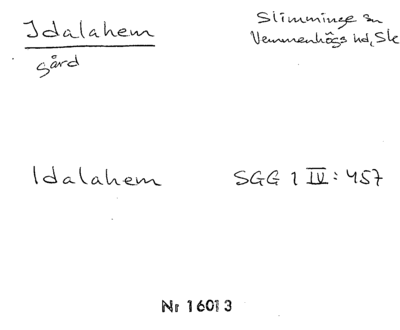 Idalahem
Slimminge sn
Vemmenhögs hd, Sk
gård
Idalahem
SGG 1 IV: 457
Nr 16013